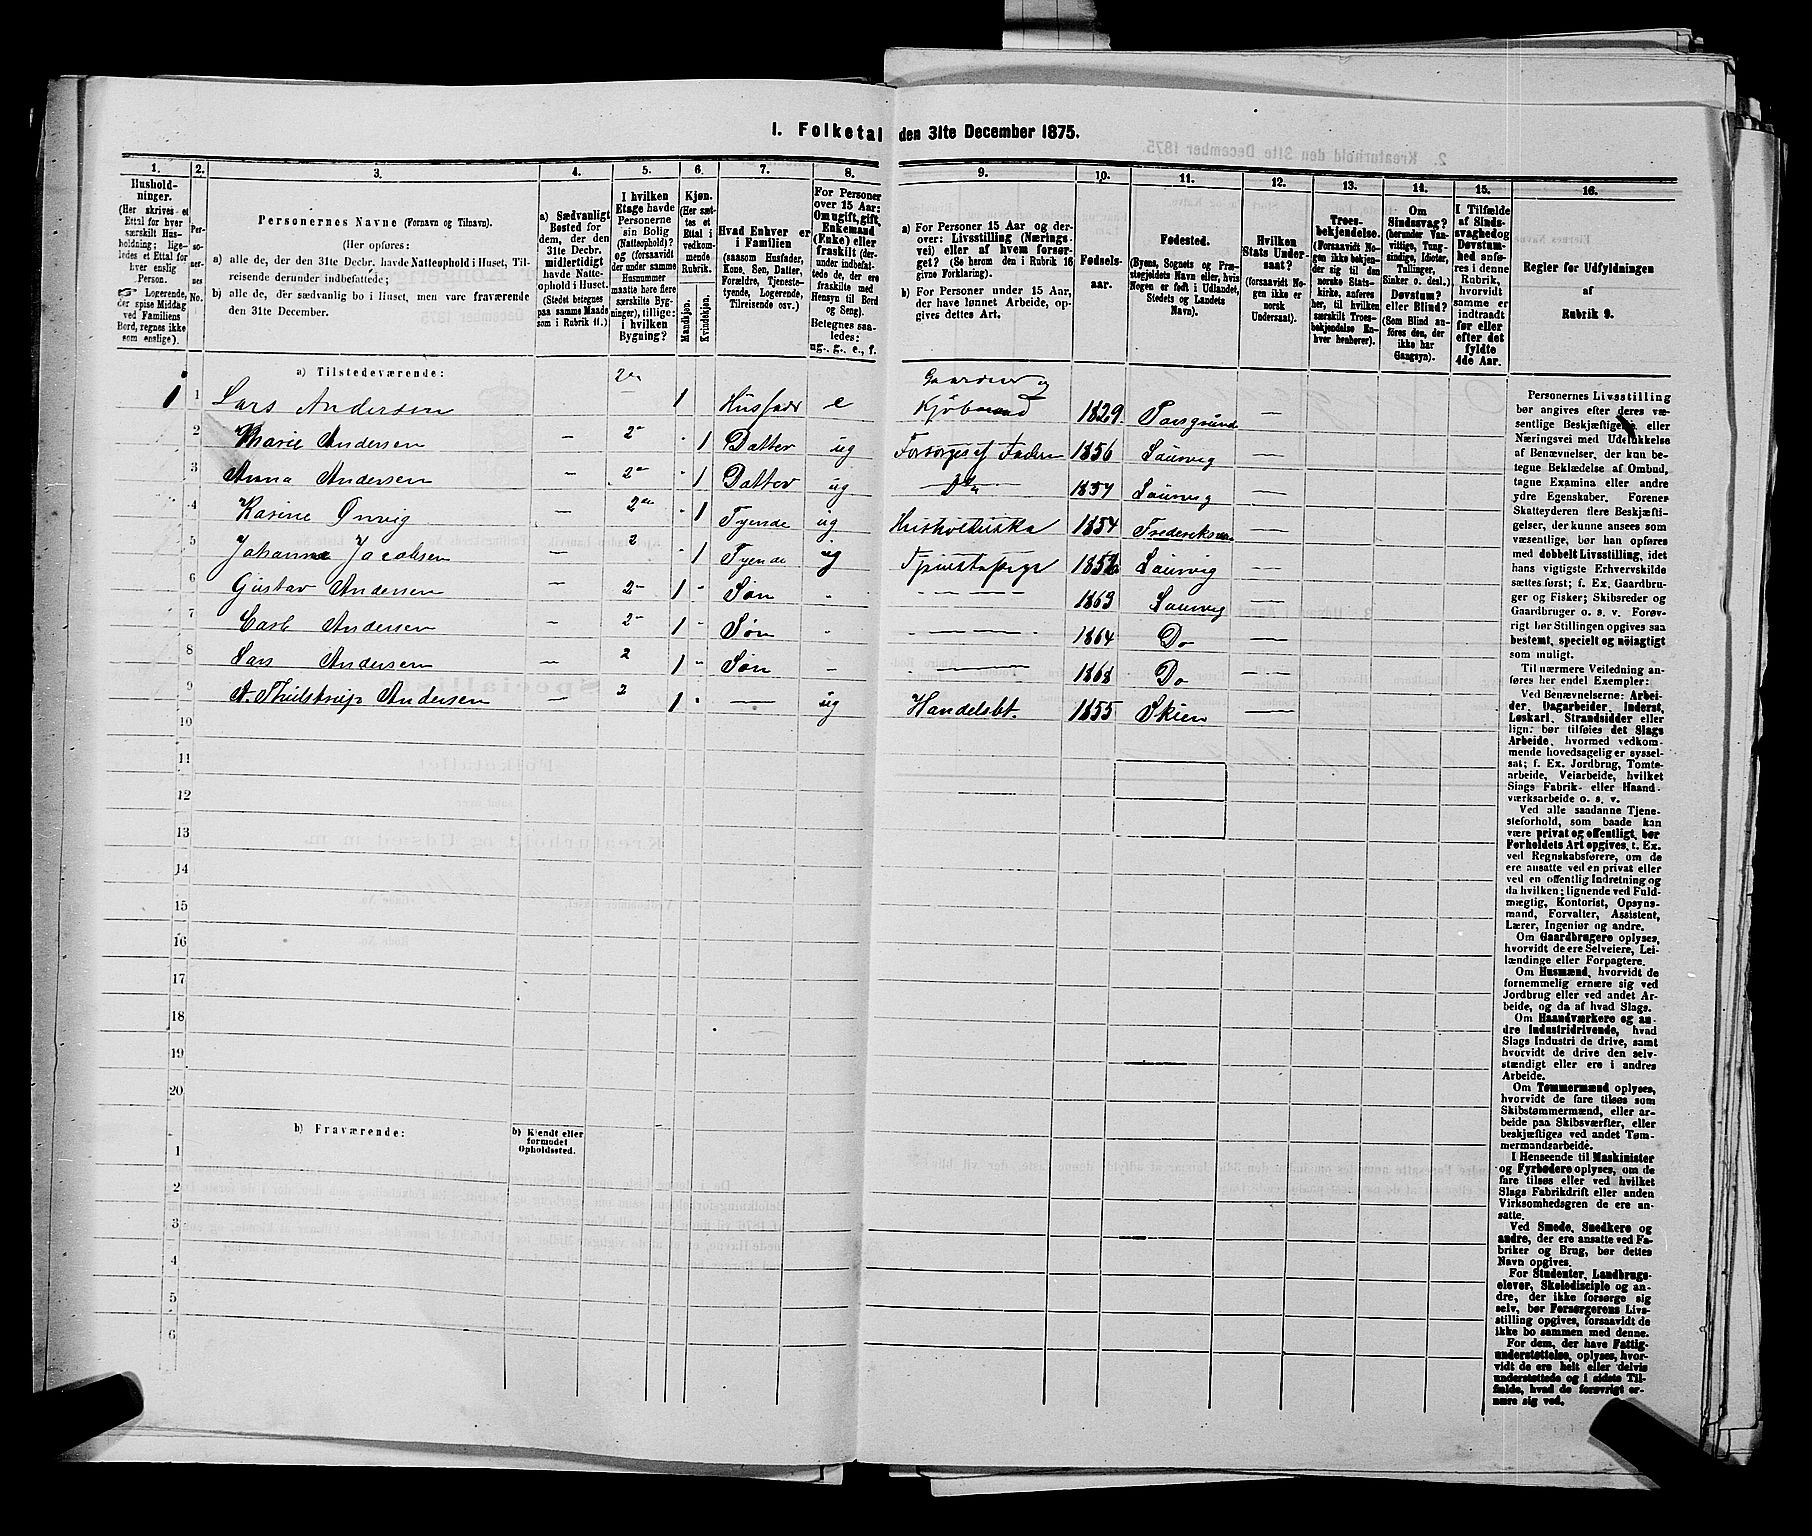 1. Folketal den 31te December 1875.
1.
Husholdninger.
(Her skrives et Ettal for hver særskilt Husholdning; ligeledes et Ettal for hver enslig Person.
☞ Logerende, der spise Middag ved Familiens Bord, regnes ikke som enslige).
2.
Personernes No.
3.
Personernes Navne (Fornavn og Tilnavn).
(Her opføres:
a) alle de, der den 31te Decbr. havde Natteophold i Huset, Tilreisende derunder indbefattede;
b) alle de, der sædvanlig bo i Huset, men vare fraværende den 31te December.
4.
a) Sædvanligt Bosted for dem, der den 31te Decbr. midlertidigt havde Natteophold i Huset.
(Stedet betegnes paa samme Maade som i Rubrik 11.)
5.
I hvilken Etage havde Personerne sin Bolig (Natteophold)?
og (forsaavidt der under samme Husnummer maatte høre flere særskilte Bygninger), tillige: i hvilken Bygning?
6.
Kjøn.
(Her sættes et Ettal i vedkommende Rubrik.
Mandkjøn.
Kvindekjøn.
7.
Hvad Enhver er i Familien
(saasom Husfader, Kone, Søn, Datter, Forældre, Tjenestetyende, Logerende, Tilreisende osv.)
8.
For Personer over 15 Aar: Om ugift, gift, Enkemand (Enke) eller fraskilt (derunder indbefattede de, der ere fraskilte med Hensyn til Bord og Seng).
Betegnes saaledes: ug., g., e., f.
9.
a) For Personer 15 Aar og derover: Livsstilling (Næringsvei) eller af hvem forsørget? (Se herom den i Rubrik 16 givne Forklaring).
b) For Personer under 15 Aar, der have lønnet Arbeide, opgives dettes Art.
10.
Fødselsaar.
11.
Fødested.
(Byens, Sognets og Præstegjeldets Navn eller, hvis Nogen er født i Udlandet, Stedets og Landets Navn).
12.
Hvilken Stats Undersaat?
(forsaavidt Nogen ikke er norsk Undersaat).
13.
Troesbekjendelse.
(Forsaavidt Nogen ikke bekjender sig til den norske Statskirke, anføres her, til hvilken særskilt Troesbekjendelse Enhver henhører).
14.
Om Sindssvag?
(herunder Vanvittige, Tungsindige, Idioter, Tullinger, Sinker o. desl.)
Døvstum? eller Blind?
(Som Blind anføres den, der ikke har Gangsyn).
15.
I Tilfælde af Sindssvaghed og Døvstumhed anføres i denne Rubrik, hvorvidt samme er indtraadt før eller efter det fyldte 4de Aar.
16.
Regler for Udfyldningen
af
Rubrik 9.
a) Tilstedeværende:
1 1 Lars Andersen 2en 1 Husfadr e Gaardeier og Kjøbmand 1829 Porsgrund —
2 Marie Andersen — 2 1 Datter ug Forsørges af Faderen 1856 Laurvig —
3 Anna Andersen — 2 1 Datter ug Do 1857 Laurvig —
4 Karine Onvig — 2 1 Tyende ug Husholderske 1854 —
5 Johanne Jacobsen — 2 1 Tyende ug Laurvig —
6 Gustav Andersen — 2 1 Søn 1863 Laurvig —
7 Carl Andersen — 2 1 Søn 1864 Do —
8 Lars Andersen — 2 1 Søn 1868 Do —
9 A. Thulstrup Andersen — 2 1 — ug Handelsbt. 1855 Skien —
10
11
12
13
14
15
16
17
18
19
20
b) Fraværende:
b) Kjendt eller formodet Opholdssted.
1
2
3
4
5
6
Personernes Livsstilling
bør angives efter deres væ-
sentlige Beskjæftigelse eller
Næringsvei med Udelukkelse
af Benævnelser, der kun be-
tegne Beklædelse af Ombud,
tagne Examina eller andre
ydre Egenskaber. Forener
Skatteyderen flere Beskjæfti-
gelser, der kunne ansees som
væsentlige, bør han opføres
med dobbelt Livsstilling, idet
hans vigtigste Erhvervskilde
sættes først; f. Ex. Gaardbru-
ger og Fisker; Skibsreder og
Gaardbruger o. s. v. Forøv-
rigt bør Stillingen opgives saa
bestemt, specielt og nöiagtigt
som muligt.
Til nærmere Veiledning an-
føres her endel Exempler:
Ved Benævnelserne: Arbei-
der, Dagarbeider, Inderst,
Løskarl, Strandsidder eller
lign. bør tilføies det Slags
Arbeide, hvormed vedkom-
mende hovedsagelig er syssel-
sat; f. Ex. Jordbrug, Tomte-
arbeide, Veiarbeide, hvilket
Slags Fabrik- eller Haand-
værksarbeide o. s. v.
Ved alle saadanne Tjene-
steforhold, som baade kan
være privat og offentligt, bør
Forholdets Art opgives, t. Ex.
ved Regnskabsførere, om de
ere ansatte ved en privat eller
ved en offentlig Indretning og
da hvilken; lignende ved Fuld-
mægtig, Kontorist, Opsyns-
mand, Forvalter, Assistent,
Lærer, Ingeniør og andre.
Om Gaardbrugere oplyses,
hvorvidt de ere Selveiere, Lei-
lændinge eller Forpagtere.
Om Husmænd, hvorvidt de
fornemmelig ernære sig ved
Jordbrug eller ved andet Ar-
beide, og da af hvad Slags.
Om Haandværkere og an-
dre Industridrivende, hvad
Slags Industri de drive, samt
hvorvidt de drive den selv-
stændigt eller ere i andres
Arbeide.
Om Tømmermænd oplyses,
hvorvidt de fare tilsøs som
Skibstømmermænd, eller ar-
beide paa Skibsværfter, eller
beskjæftiges ved andet Tøm-
mermandsarbeide.
I Henseende til Maskinister
og Fyrbødere oplyses, om de
fare tilsøs eller ved hvilket
Slags Fabrikdrift eller anden
Virksomhedsgren de ere an-
satte.
Ved Smede, Snedkere og
andre, der ere ansatte ved Fa-
briker og Brug, bør dettes
Navn opgives.
For Studenter, Landbrugs-
elever, Skoledisciple og an-
dre, der ikke forsørge sig
selv, bør Forsørgerens Livs-
stilling opgives, forsaavidt de
ikke bo sammen med denne.
For dem, der have Fattig-
understøttelse, oplyses, hvor-
vidt de ere helt eller delvis
understøttede og i sidste Til-
fælde, hvad de forøvrigt er-
nære sig ved.